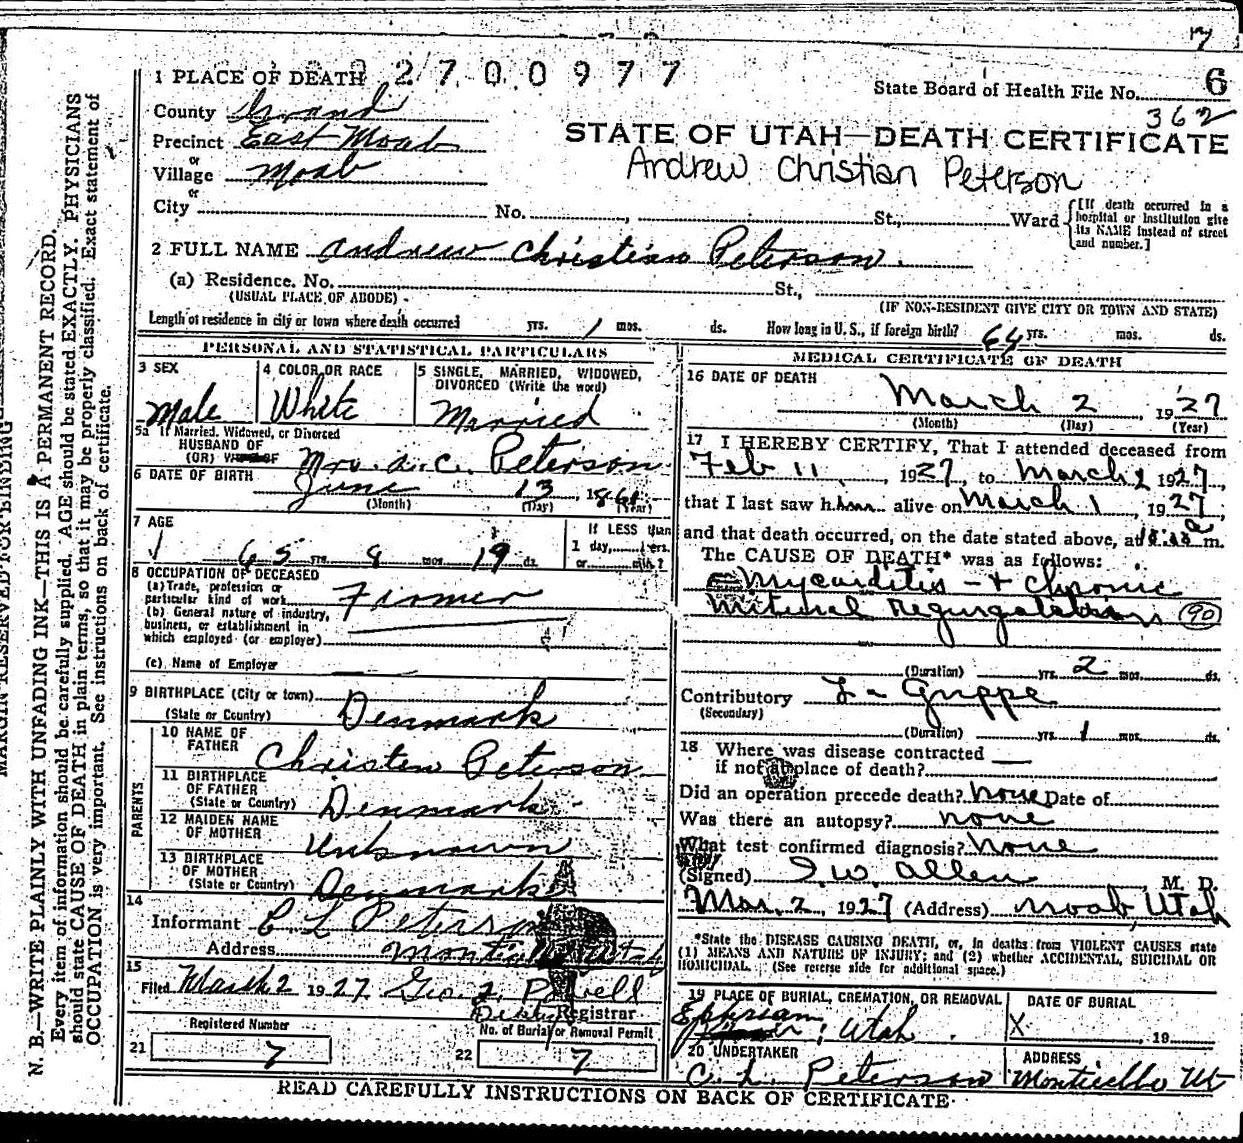 7
2700977
1 PLACE OF DEATH
State Board of Health File No. 6
362
County Grand
Precinct East Moab
or
Village Moab
or
City No. , St., Ward
[If death occurred in a hospital or institution give its NAME instead of street and number.]
STATE OF UTAH—DEATH CERTIFICATE
Andrew Christian Peterson
2 FULL NAME Andrew Christian Peterson.
(a) Residence. No. St.,
(USUAL PLACE OF ABODE) (IF NON-RESIDENT GIVE CITY OR TOWN AND STATE)
Length of residence in city or town where death occurred yrs. 1 mos. ds. How long in U. S., if foreign birth? 64 yrs. mos. ds.
PERSONAL AND STATISTICAL PARTICULARS
3 SEX
Male
4 COLOR OR RACE
White
5 SINGLE, MARRIED, WIDOWED, DIVORCED (Write the word)
Married
5a If Married, Widowed, or Divorced
HUSBAND OF
(OR) WIFE OF Mrs. A. C. Peterson
6 DATE OF BIRTH June 13, 1861
(Month) (Day) (Year)
7 AGE
65 yrs. 8 mos. 19 ds.
If LESS than
1 day, hrs.
or min.?
8 OCCUPATION OF DECEASED
(a) Trade, profession or
particular kind of work Farmer
(b) General nature of industry,
business, or establishment in
which employed (or employer)
(c) Name of Employer
9 BIRTHPLACE (City or town)
(State or Country) Denmark
PARENTS
10 NAME OF
FATHER Christen Peterson
11 BIRTHPLACE
OF FATHER
(State or Country) Denmark
12 MAIDEN NAME
OF MOTHER Unknown
13 BIRTHPLACE
OF MOTHER
(State or Country) Denmark
14
Informant C L Peterson
Address Monticello Utah
15
Filed March 2 1927 Geo. Powell
Registrar
Registered Number
21 7
No. of Burial or Removal Permit
22 7
MEDICAL CERTIFICATE OF DEATH
16 DATE OF DEATH
March 2, 1927
(Month) (Day) (Year)
17 I HEREBY CERTIFY, That I attended deceased from
Feb 11, 1927, to March 2 1927,
that I last saw him alive on March 1, 1927,
and that death occurred, on the date stated above, at m.
The CAUSE OF DEATH* was as follows:
Mycarditis - + Chronic
Mitural Regurgatation 90
(Duration) yrs. 2 mos. ds.
Contributory La Grippe
(Secondary)
(Duration) yrs. 1 mos. ds.
18 Where was disease contracted
if not at place of death?
Did an operation precede death? none Date of
Was there an autopsy? none
What test confirmed diagnosis? none
(Signed) I. W. Allen, M. D.
Mar. 2, 1927 (Address) Moab, Utah
*State the DISEASE CAUSING DEATH, or, in deaths from VIOLENT CAUSES state
(1) MEANS AND NATURE OF INJURY; and (2) whether ACCIDENTAL, SUICIDAL OR
HOMICIDAL. (See reverse side for additional space.)
19 PLACE OF BURIAL, CREMATION, OR REMOVAL
Ephriam
, Utah
DATE OF BURIAL
X , 19
20 UNDERTAKER
C. L. Peterson
ADDRESS
Monticello Ut
READ CAREFULLY INSTRUCTIONS ON BACK OF CERTIFICATE
MARGIN RESERVED FOR BINDING
N. B.—WRITE PLAINLY WITH UNFADING INK—THIS IS A PERMANENT RECORD.
Every item of information should be carefully supplied. AGE should be stated EXACTLY. PHYSICIANS
should state CAUSE OF DEATH in plain terms, so that it may be properly classified. Exact statement of
OCCUPATION is very important. See instructions on back of certificate.